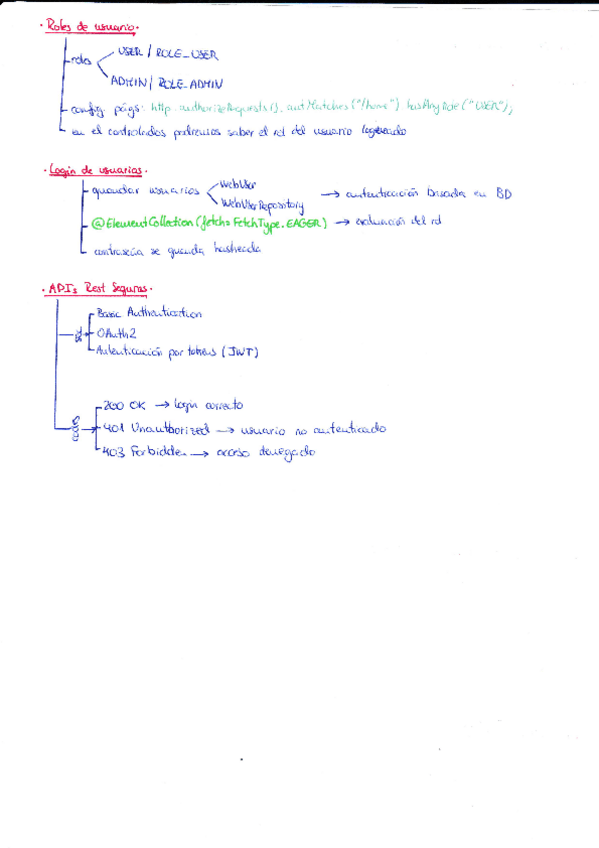 · Roles de usuario ·
roles
USER / ROLE_USER
ADMIN / ROLE_ADMIN
config. págs: http.authorizeRequests().antMatches("/home") hasAnyRole("USER");
en el controlador podremos saber el rol del usuario logueado
· Login de usuarios ·
guardar usuarios
WebUser
WebUserRepository
→ autenticación basada en BD
@ElementCollection (fetch= FetchType.EAGER) → evaluación del rol
contraseña se guarda hasheada
· APIs Rest Seguras ·
Basic Authentication
OAuth2
Autenticación por tokens (JWT)
codes
200 OK → login correcto
401 Unauthorized → usuario no autenticado
403 Forbidden → acceso denegado